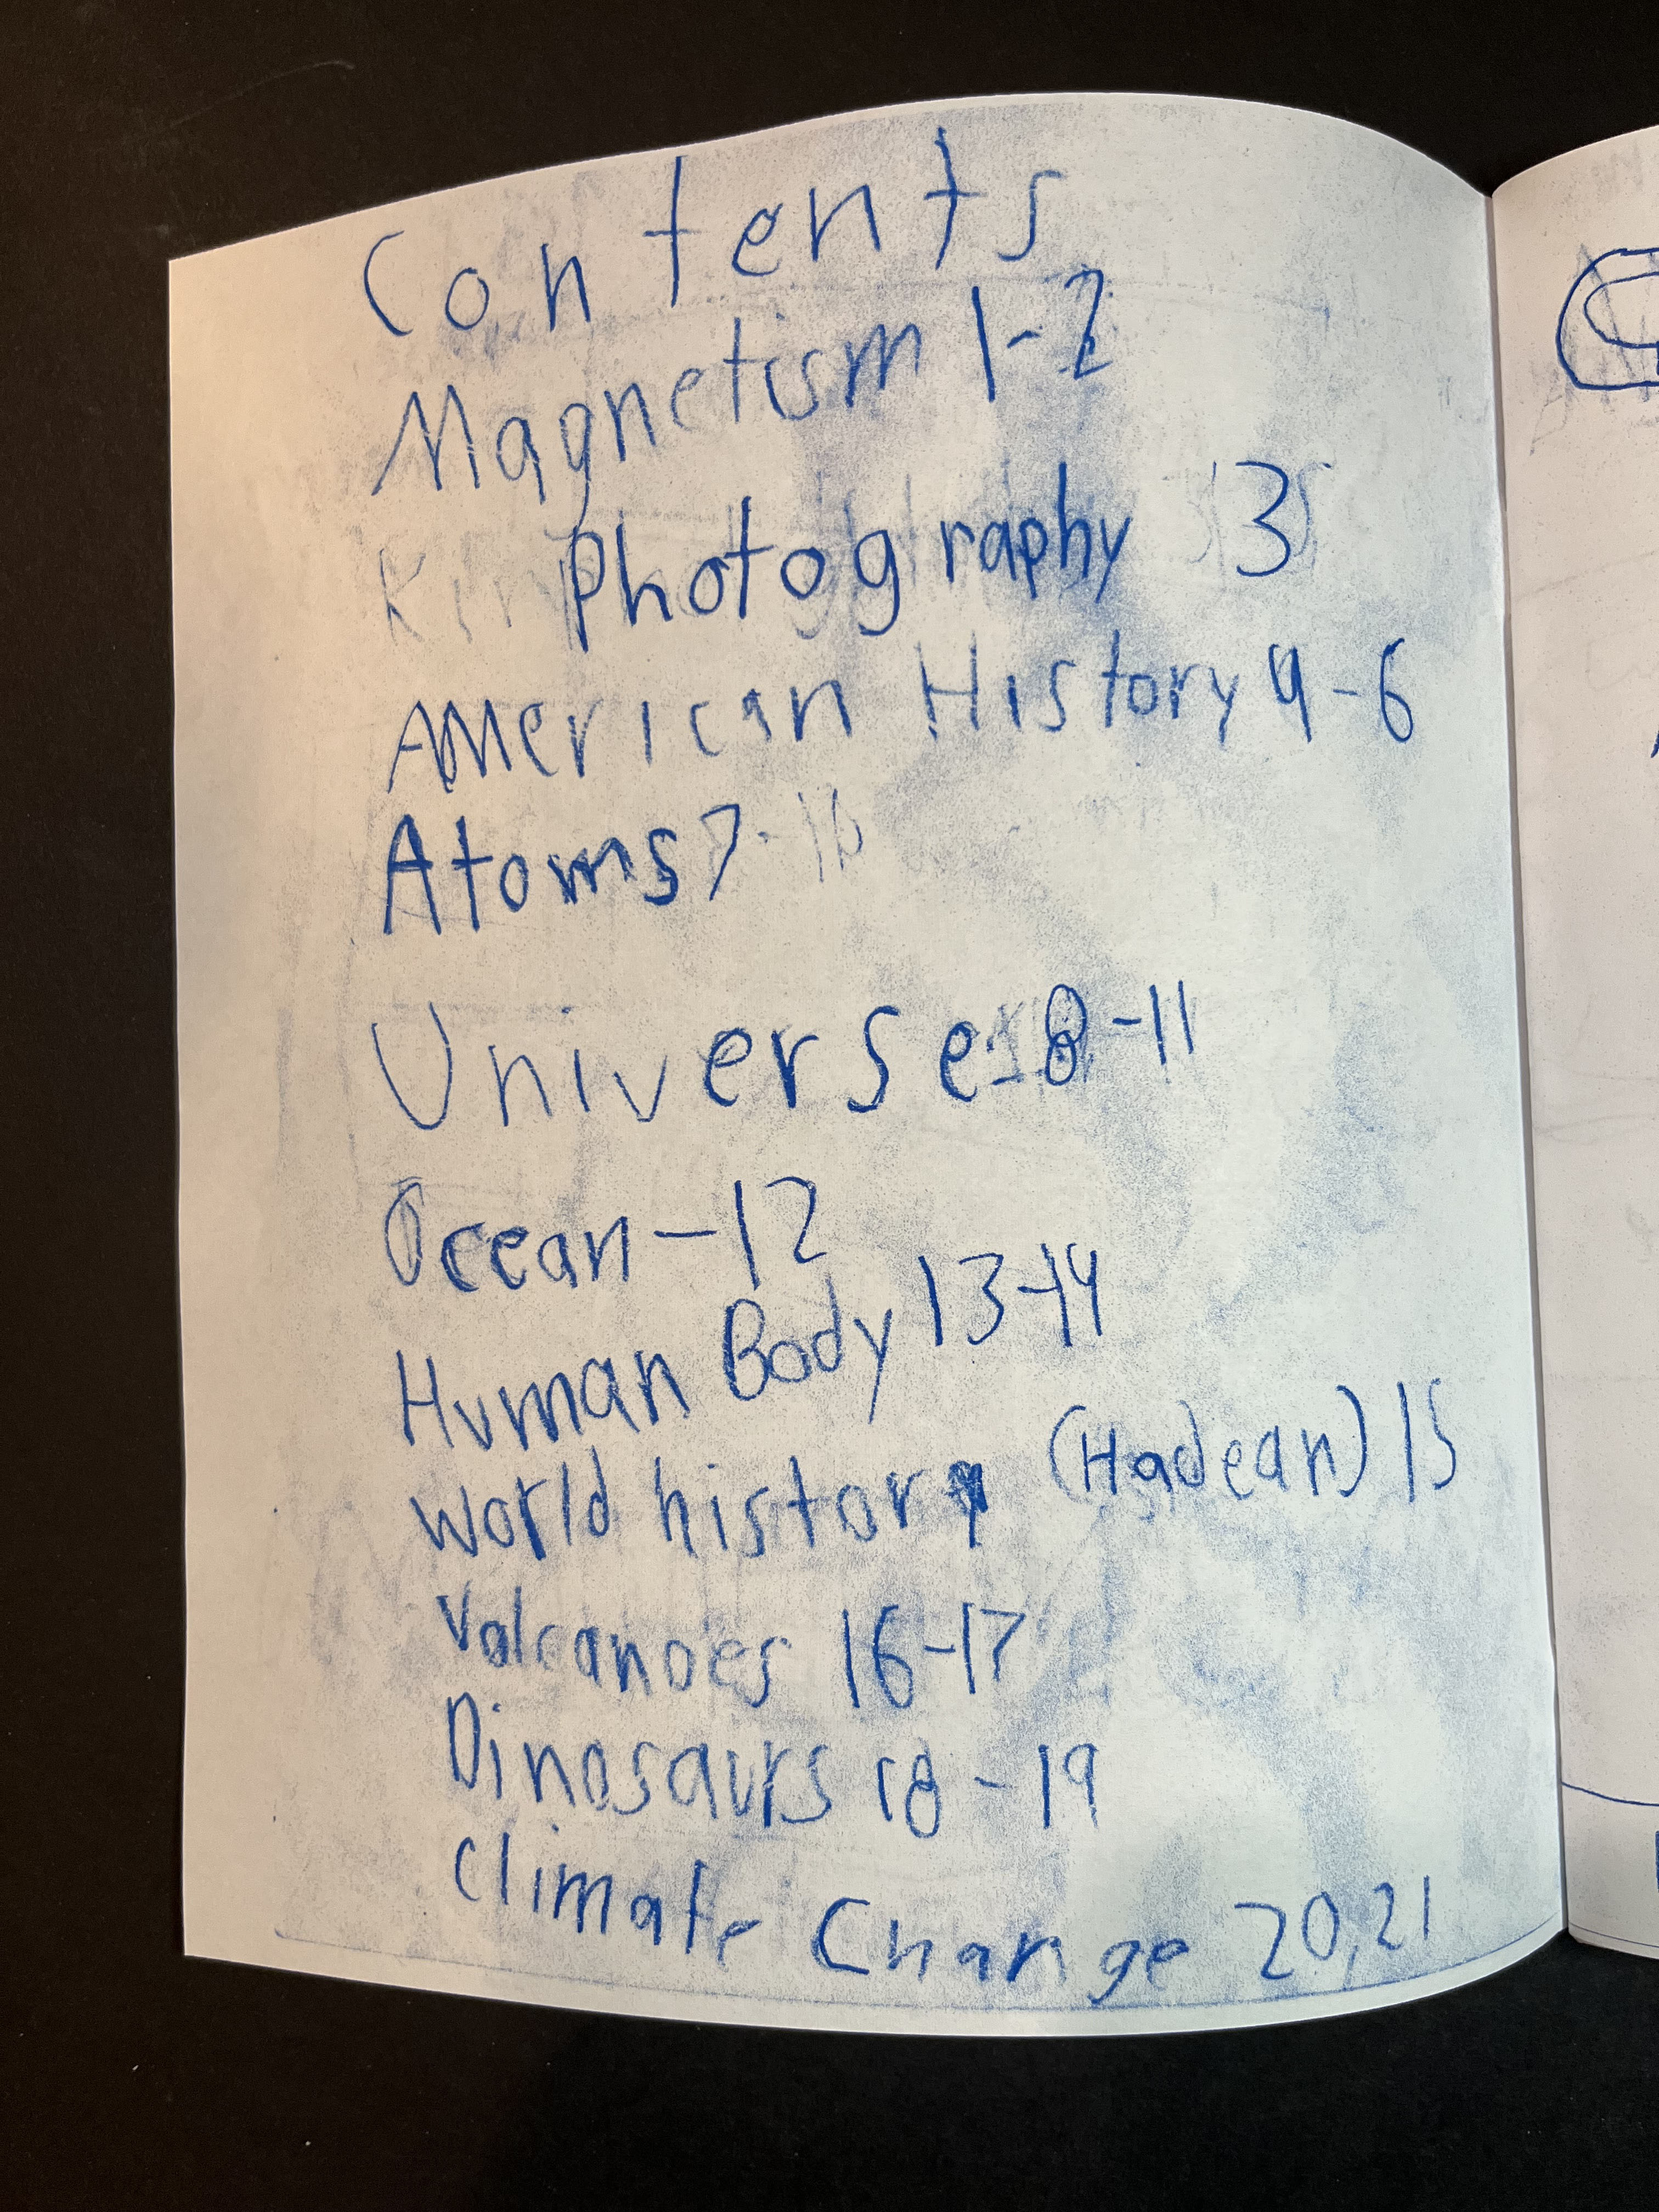 Contents
Magnetism 1-2
Photography 3
American History 4-6
Atoms 7
Universe 8-11
Ocean-12
Human Body 13-14
World history (Hadean) 15
Volcanoes 16-17
Dinosaurs 18-19
Climate Change 20,21